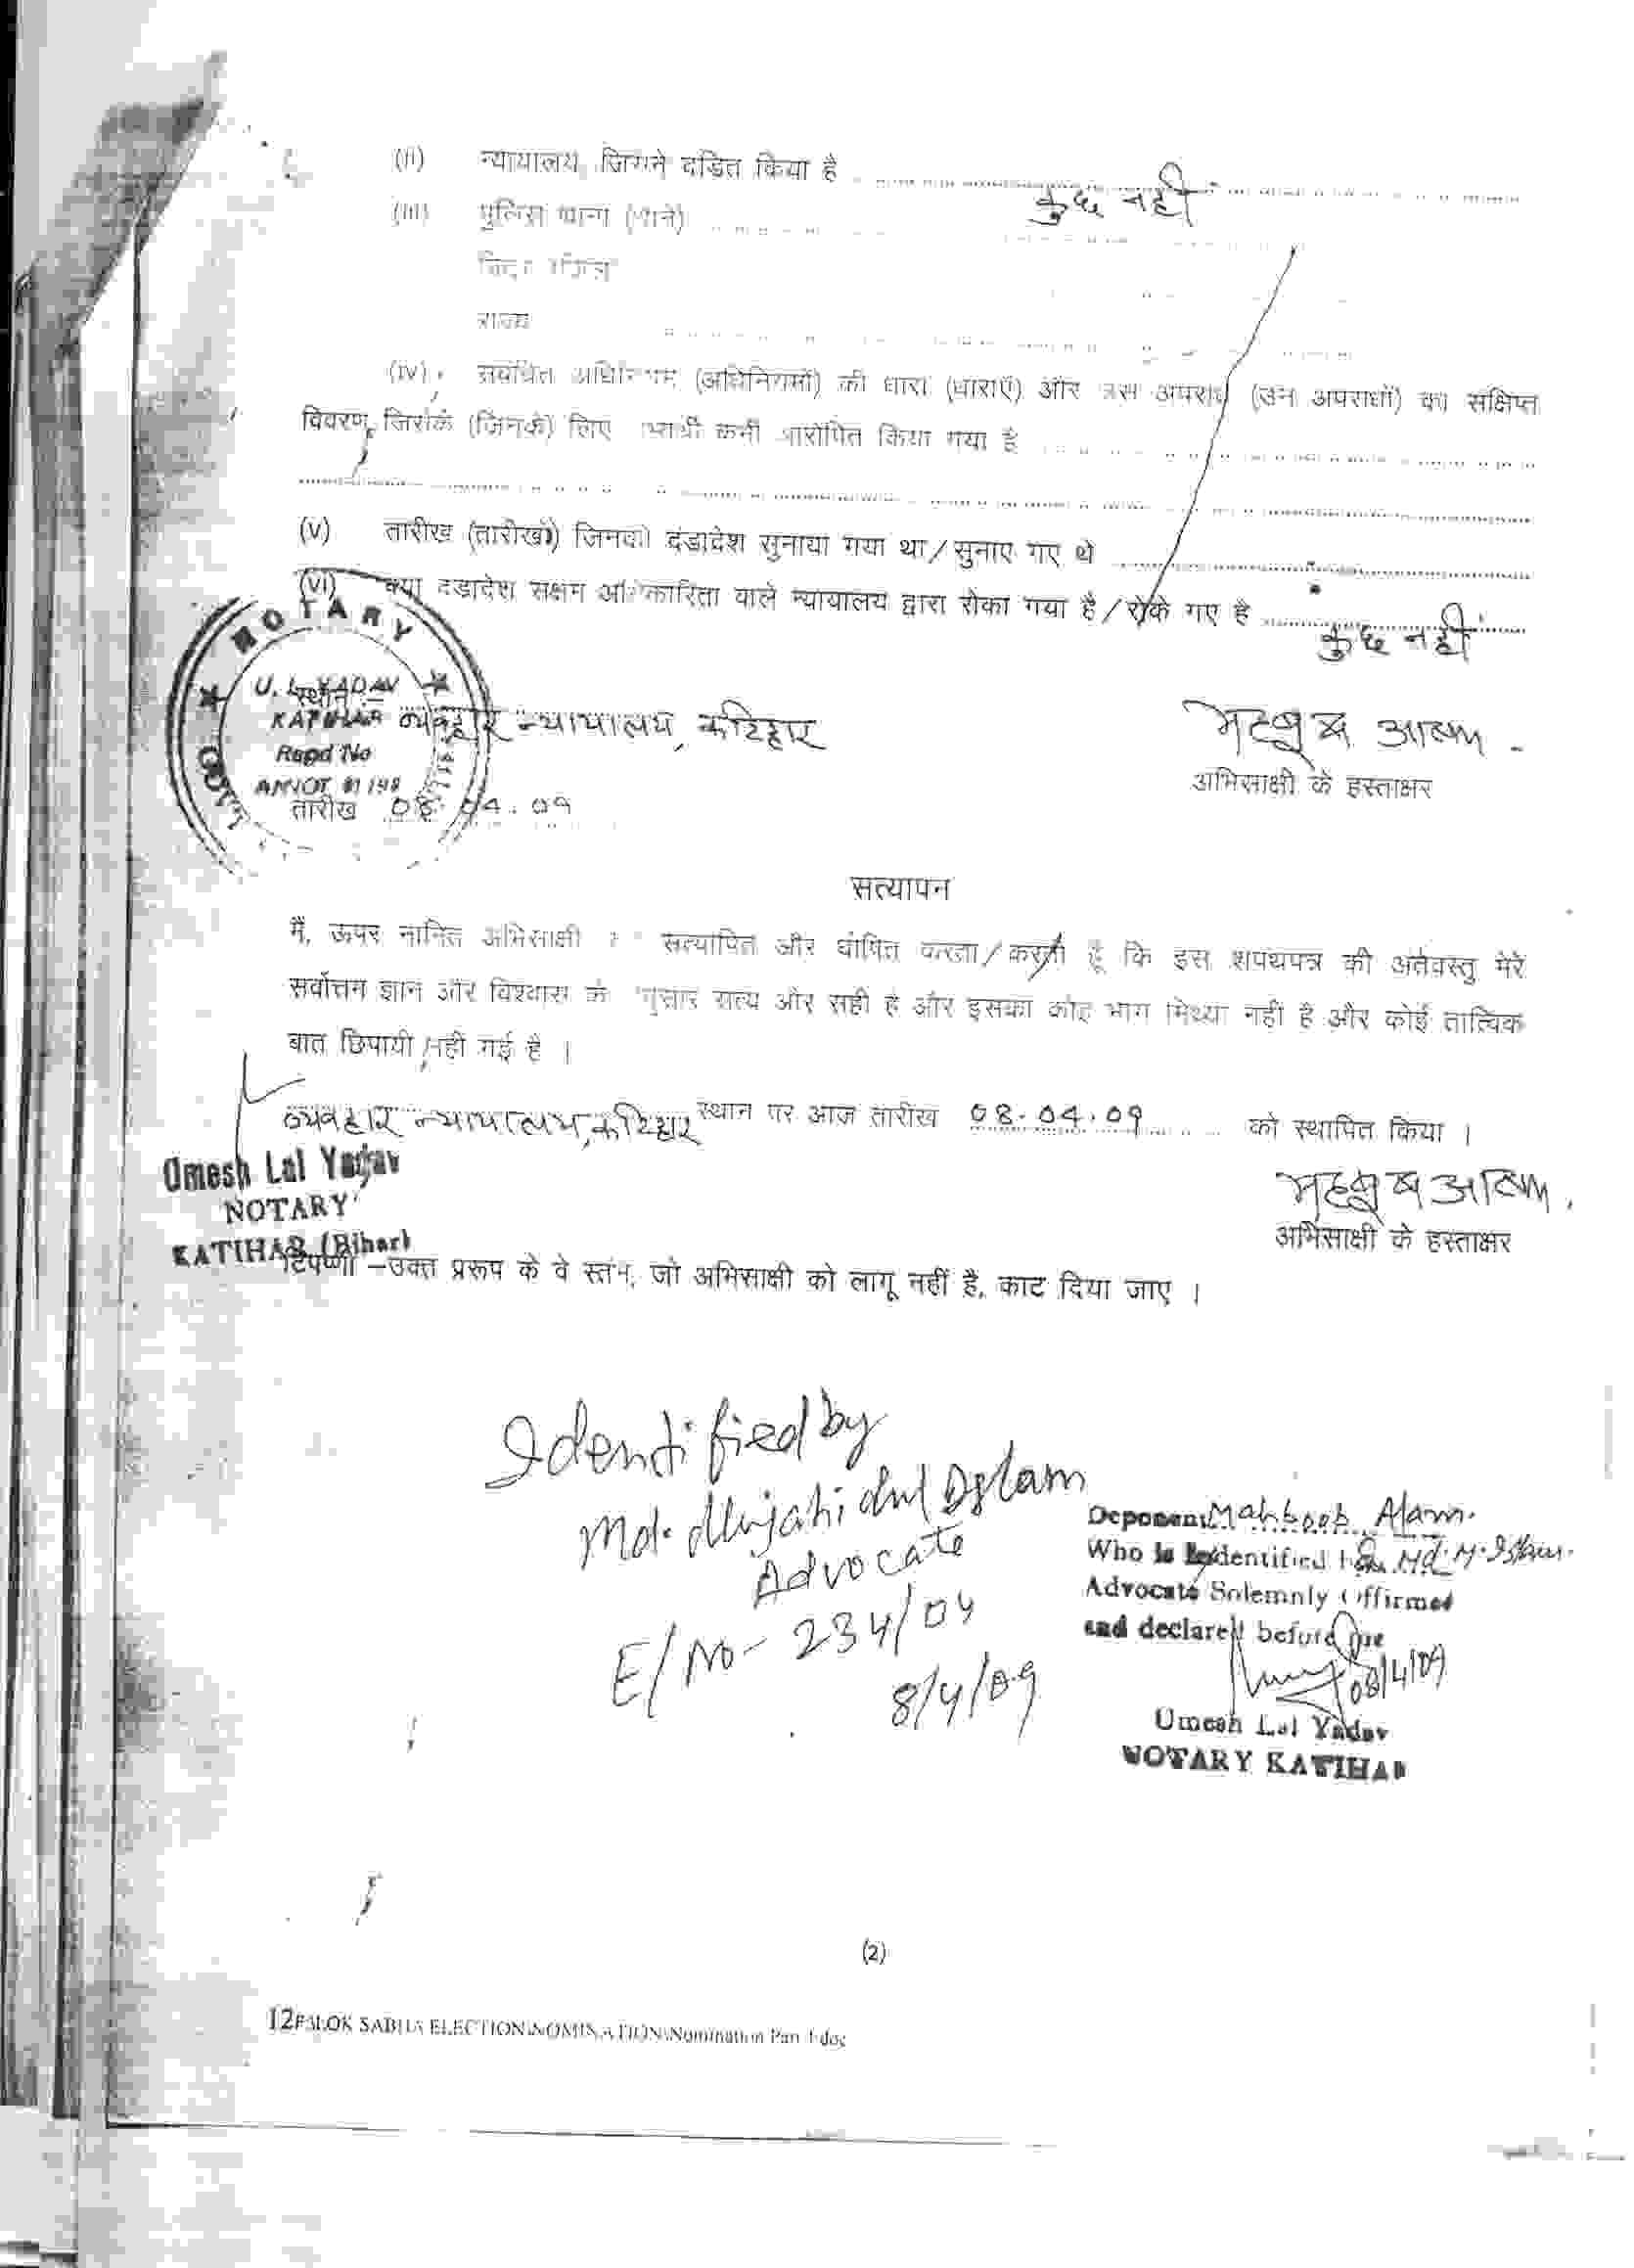 (ii) न्यायालय, जिसने दंडित किया है
कुछ नहीं
(iii) पुलिस थाना (थाने)
राज्य
(iv) संबंधित अधिनियम (अधिनियमों) की धारा (धाराएँ) और उस अपराध (उन अपराधों) का संक्षिप्त
विवरण, जिसके (जिनके) लिए अभ्यर्थी को आरोपित किया गया है
(v) तारीख (तारीखों) जिनको दंडादेश सुनाया गया था/सुनाए गए थे
(vi) क्या दंडादेश सक्षम अधिकारिता वाले न्यायालय द्वारा रोका गया है/रोके गए है
कुछ नहीं
NOTARY
U. L. YADAV
KATIHAR
Regd No
स्थान :- व्यवहार न्यायालय, कटिहार
महबुब आलम
अभिसाक्षी के हस्ताक्षर
तारीख 08.04.09
सत्यापन
मैं, ऊपर नामित अभिसाक्षी सत्यापित और घोषित करता/करती हूँ कि इस शपथपत्र की अंतर्वस्तु मेरे
सर्वोत्तम ज्ञान और विश्वास के अनुसार सत्य और सही है और इसका कोई भाग मिथ्या नहीं है और कोई तात्विक
बात छिपायी नहीं गई है ।
व्यवहार न्यायालय, कटिहार स्थान पर आज तारीख 08.04.09 को स्थापित किया ।
Omesh Lal Yadav
NOTARY
KATIHAR (Bihar)
महबुब आलम
अभिसाक्षी के हस्ताक्षर
टिप्पणी –उक्त प्ररूप के वे स्तंभ, जो अभिसाक्षी को लागू नहीं है, काट दिया जाए ।
Identified by
Md. Mujahidul Islam
Advocate
E/No- 234/04
8/4/09
Deponent Mahboob Alam.
Who is identified by Md. M. Islam.
Advocate Solemnly Affirmed
and declared before me
08/4/09
Umesh Lal Yadav
NOTARY KATIHAR
(2)
12 LOK SABHA ELECTION\NOMINATION\Nomination Part I.doc